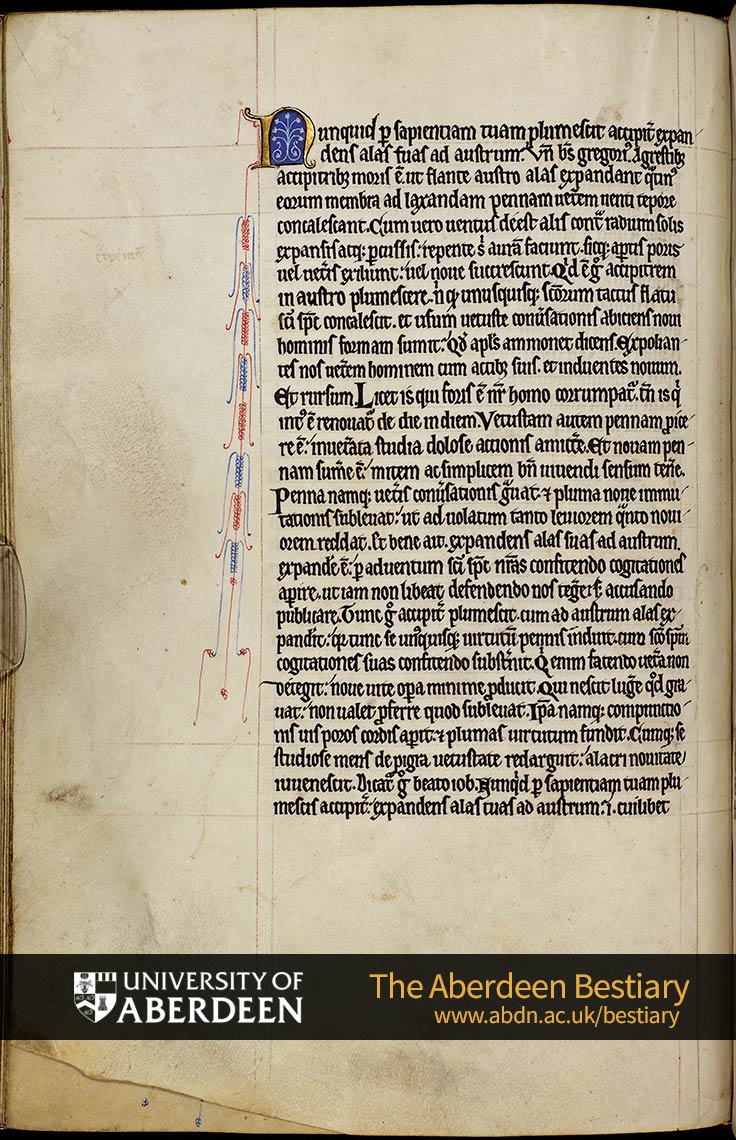 Nunquid p̱ sapientiam tuam plumescit accipit̄ expan
dens alas suas ad austrum. Vn̄ b̄s gregoriꝰ. Agrestibꝫ
accipitribꝫ moris ē. ut flante austro alas expandant q̄tinꝰ
eorum membra ad laxandam pennam uet̄em uenti tepore
concalescant. Cum uero uentus deest alis cont̄ radium solis
expansis atqꝫ ꝑcussis. repente s̓ aurā faciunt. sicqꝫ aꝑtis poris
uel uet̄es exiliunt. uel noue succrescunt. Qͥd ē g̊ accipitrem
in austro plumescere. n̓ qꝫ unusquisqꝫ sc̄orum tactus flatu
sc̄i sp̄c concalescit. et usum uetuste conūsationis abiciens noui
hominis formam sumit. Qd̓ apl̄s ammonet dicens. Expolian
tes nos uet̄em hominem cum actibꝫ suis. et induentes nouum.
Et rursum. Licet is qui foris ē nr̄ homo corrumpat̄. tn̄ is qͥ
intꝰ ē renouat̄ de die in diem. Vetustam autem pennam p̱ice
re ē. inuet̄ata studia dolose actionis amitt̄e. Et nouam pen
nam sum̄e ē. mitem ac simplicem bn̄ uiuendi sensum ten̄e.
Penna namqꝫ uet̄is conūsationis g̓uat. ⁊ pluma noue immu
tationis subleuat. ut ad uolatum tanto leuiorem qͣnto noui
orem reddat. Et bene ait. expandens alas suas ad austrum.
expande ē. ꝑ aduentum sc̄i sp̄c nr̄as confitendo cogitationes
aꝑire. ut iam non libeat defendendo nos teg̓e. s; accusando
publicare. Tunc g̊ accipit̄ plumescit. cum ad austrum alas ex
pandit. qꝛ tunc se unͥquisqꝫ uirtutū pennis induit. cum sc̄o sp̄ui
cogitationes suas confitendo subst̓nit. Qͥ enim fatendo uet̄a non
detegit. noue uite oꝑa minime ꝓducit. Qui nescit lug̓e qͦd gra
uat. non ualet ꝓferre quod subleuat. Ip̄a namqꝫ compunctio
nis uis poros cordis aꝑit. ⁊ plumas uirtutum fundit. Cumqꝫ se
studiose mens de pigra uetustate redarguit. alacri nouitate
iuuenescit. Dicat̄ g̊ beato iob. Nunqͥd ꝑ sapientiam tuam plu
mescit accipit̄. expandens alas tuas ad austrum. .i. cuilibet
UNIVERSITY OF
ABERDEEN
The Aberdeen Bestiary
www.abdn.ac.uk/bestiary